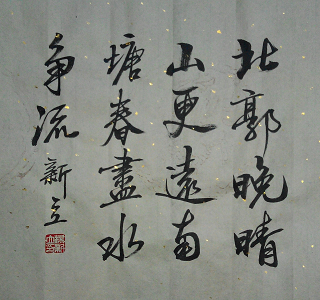 北郭晚晴
山更遠南
塘春盡水
争流新立